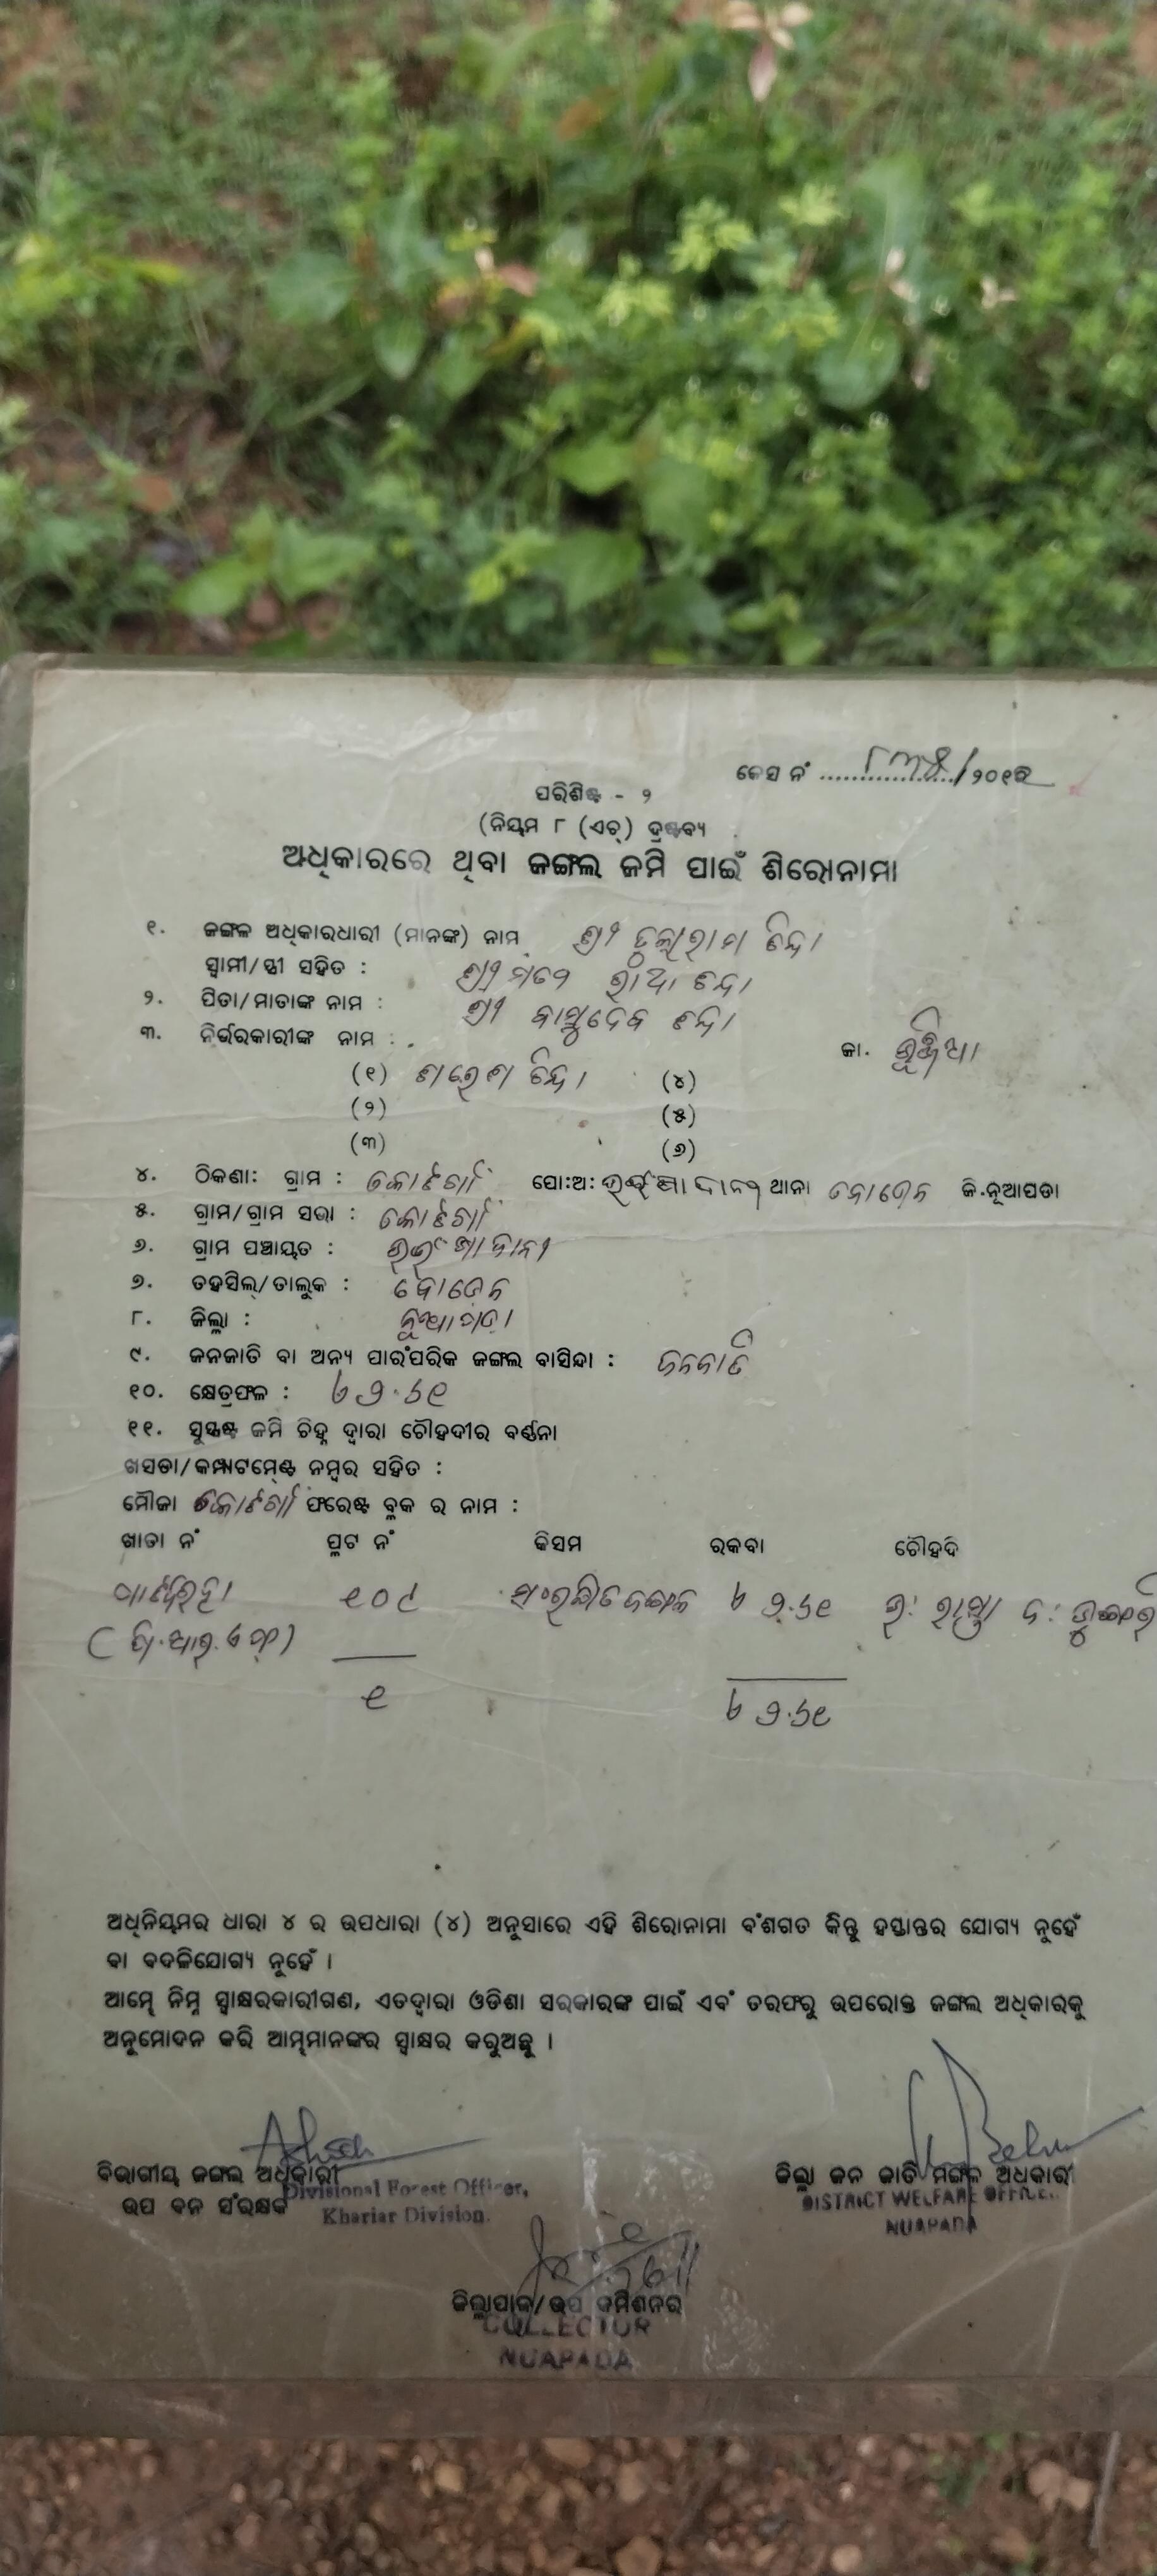 କେସ ନଂ ..................../୨୦୧୧
ପରିଶିଷ୍ଟ - ୨
(ନିୟମ ୮ (ଏଚ୍) ଦ୍ରଷ୍ଟବ୍ୟ
ଅଧିକାରରେ ଥିବା ଜଙ୍ଗଲ ଜମି ପାଇଁ ଶିରୋନାମା
୧. ଜଙ୍ଗଲ ଅଧିକାରଧାରୀ (ମାନଙ୍କ) ନାମ ଶ୍ରୀ ତୁଲାରାମ ଛିନ୍ଦା
ସ୍ୱାମୀ/ସ୍ତ୍ରୀ ସହିତ :
୨. ପିତା/ମାତାଙ୍କ ନାମ : ଶ୍ରୀ ବାସୁଦେବ ଛିନ୍ଦା
୩. ନିର୍ଭରକାରୀଙ୍କ ନାମ : ଜା. ଭୁଞ୍ଜିଆ
(୧) ଛିନ୍ଦା (୪)
(୨) (୫)
(୩) (୬)
୪. ଠିକଣା: ଗ୍ରାମ : ପୋ:ଅ: ଥାନା ବୋଡେନ ଜି.ନୂଆପଡା
୫. ଗ୍ରାମ/ଗ୍ରାମ ସଭା :
୬. ଗ୍ରାମ ପଞ୍ଚାୟତ :
୭. ତହସିଲ୍/ତାଲୁକ : ବୋଡେନ
୮. ଜିଲ୍ଲା : ନୂଆପଡା
୯. ଜନଜାତି ବା ଅନ୍ୟ ପାରଂପରିକ ଜଙ୍ଗଲ ବାସିନ୍ଦା : ଜନଜାତି
୧୦. କ୍ଷେତ୍ରଫଳ :
୧୧. ସୁସ୍ପଷ୍ଟ ଜମି ଚିହ୍ନ ଦ୍ୱାରା ଚୌହଦୀର ବର୍ଣ୍ଣନା
ଖସଡା/କମ୍ପାଟମେଣ୍ଟ ନମ୍ବର ସହିତ :
ମୌଜା ଫରେଷ୍ଟ ବ୍ଲକ ର ନାମ :
ଖାତା ନଂ ପ୍ଲଟ ନଂ କିସମ ରକବା ଚୌହଦି
ସଂରକ୍ଷିତ ଜଙ୍ଗଲ ଉ: ରାସ୍ତା ଦ: ଡୁଙ୍ଗରି
(ପି.ଆର.ଏଫ)
୧
ଅଧିନିୟମର ଧାରା ୪ ର ଉପଧାରା (୪) ଅନୁସାରେ ଏହି ଶିରୋନାମା ବଂଶଗତ କିନ୍ତୁ ହସ୍ତାନ୍ତର ଯୋଗ୍ୟ ନୁହେଁ
ବା ବଦଳିଯୋଗ୍ୟ ନୁହେଁ ।
ଆମ୍ଭେ ନିମ୍ନ ସ୍ୱାକ୍ଷରକାରୀଗଣ, ଏତଦ୍ୱାରା ଓଡିଶା ସରକାରଙ୍କ ପାଇଁ ଏବଂ ତରଫରୁ ଉପରୋକ୍ତ ଜଙ୍ଗଲ ଅଧିକାରକୁ
ଅନୁମୋଦନ କରି ଆମ୍ଭମାନଙ୍କର ସ୍ୱାକ୍ଷର କରୁଅଛୁ ।
ବିଭାଗୀୟ ଜଙ୍ଗଲ ଅଧିକାରୀ
ଉପ ବନ ସଂରକ୍ଷକ
Divisional Forest Officer,
Khariar Division.
ଜିଲ୍ଲା ଜନ ଜାତି ମଙ୍ଗଳ ଅଧିକାରୀ
DISTRICT WELFARE OFFICER
NUAPADA
ଜିଲ୍ଲାପାଳ/ଉପ କମିଶନର
COLLECTOR
NUAPADA